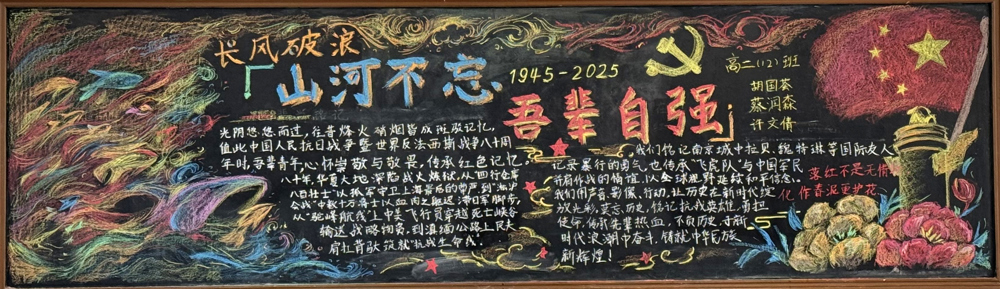 长风破浪
「山河不忘、
1945-2025
吾辈自强」
高二(12)班
胡国葵
蔡润森
许文倩
光阴悠悠而过,往昔烽火硝烟皆成斑驳记忆,
值此中国人民抗日战争暨世界反法西斯战争八十周
年时,吾辈青年心怀崇敬与敬畏,传承红色记忆。
八十年,华夏大地深陷战火炼狱,从四行仓库
八百壮士以孤军守卫上海最后的尊严,到"淞沪
会战"中数十万将士以血肉之躯迟滞日军脚步,
从"驼峰航线"上中美飞行员穿越死亡峡谷
输送战略物资,到滇缅公路上民夫
肩扛背驮筑就"抗战生命线"。
我们铭记南京城中拉贝、魏特琳等国际友人
记录暴行的勇气,也传承"飞虎队"与中国军民
并肩作战的情谊,以全球视野延续和平信念。
我们用声音、影像、行动,让历史在新时代绽
放光彩,莫忘历史,铭记抗战英雄,勇担
使命,传承先辈热血,不负历史,于新
时代浪潮中奋斗,铸就中华民族
新辉煌!
落红不是无情
化作春泥更护花